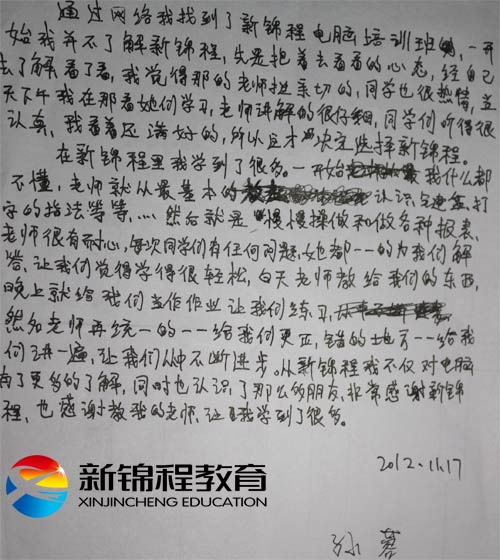 通过网络我找到了新锦程电脑培训班的,一开
始我并不了解新锦程,先是抱着去看看的心态,经自己
去了解看了看,我觉得那的老师挺亲切的,同学也很热情,当
天下午我在那看她们学习,老师讲解的很仔细,同学们听得很
认真,我看着还满好的,所以这才决定选择新锦程。
在新锦程里我学到了很多。一开始我什么都
不懂,老师就从最基本的认识键盘,打
字的指法等等,.... 然后就是慢慢操做和做各种报表,
老师很有耐心,每次同学们有任何问题,她都一一的为我们解
答,让我们觉得学得很轻松,白天老师教给我们的东西,
晚上就给我们当作作业让我们练习,
然后老师再统一的一一给我们更正,错的她一一给我
们讲一遍,让我们从中不断进步。从新锦程我不仅对电脑
有了更多的了解,同时也认识了那么多朋友,非常感谢新锦
程,也感谢教我的老师,让我学到了很多。
2012.11.17
新锦程教育
XINJINCHENG EDUCATION